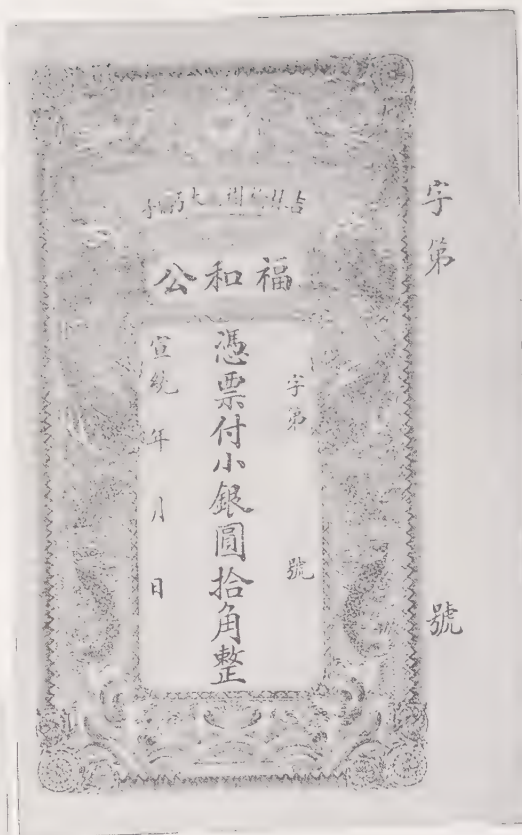 字第 號
福和公
字第 號
憑票付小銀圓拾角整
宣統 年 月 日